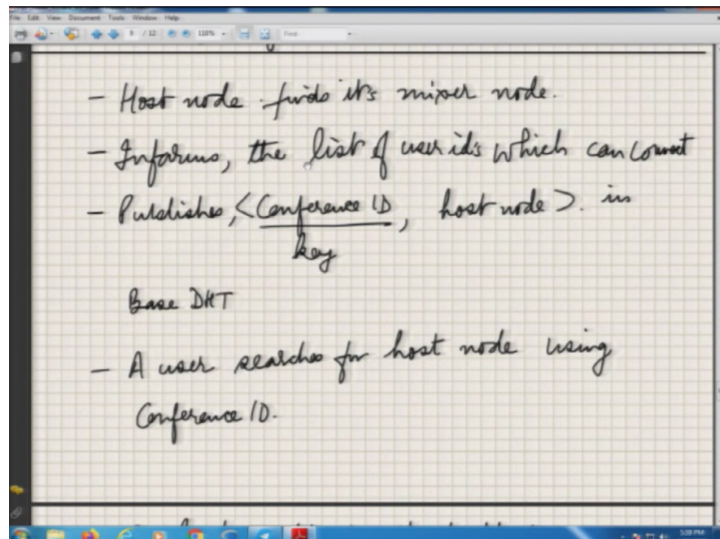 File Edit View Document Tools Window Help
9 / 12 118% Find
- Host node finds it's mixer node.
- Informs, the list of user ids which can connect
- Publishes, <Conference ID, host node>. in
key
Base DHT
- A user searches for host node using
Conference ID.
5:08 PM